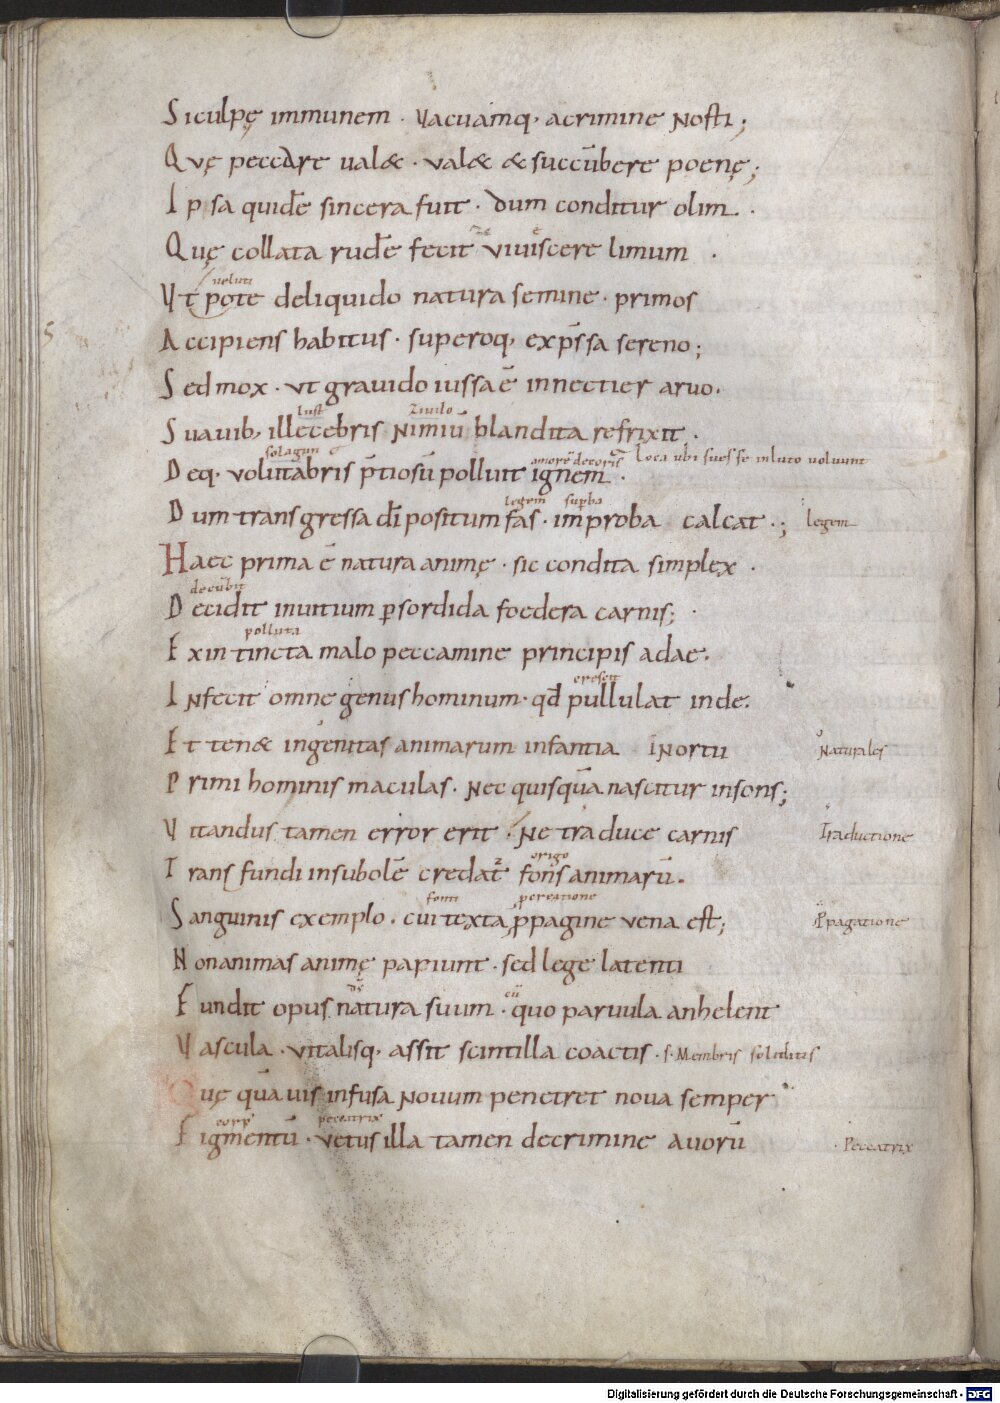 Siculpę immunem · Vacuamq; acrimine Nosti;
Qvę peccare ualet · valet et succūbere poenę;
Ipsa quidē sincera fuit · dum conditur olim ·
Quę collata rudē fecit viviscere limum ·
uelut
Vt pote deliquido natura semine · primos
Accipiens habitus · superoq; exp̄ssa sereno;
Sed mox · vt gravido iussa ē innectier aruo.
lust
Suauib; illecebris Nimiū blandita refrixit ·
solagun
Deq; volutabris p̄tiosū polluit ignem · Loca ubi sues se inluto uoluunt
legem
Dum transgressa dī positum fas · improba calcat · ; legem
Haec prima ē natura animę · sic condita simplex ·
decūbit
Decidit inuitium p sordida foedera carnis; ·
polluta
Exin tincta malo peccamine principis adae.
Infecit omne genus hominum · qđ pullulat inde.
Et tenet ingenitas animarum infantia INortu Naturales
Primi hominis maculas · Nec quisquā nascitur insons;
Vitandus tamen error erit · Ne traduce carnis Traductione
origo
Transfundi insubolē credat᷑ fons animarū.
Sanguinis exemplo · cui texta p̄pagine vena est; Ppagatione
Nonanimas animę pariunt · sed lege latenti
Fundit opus natura suum · quo paruula anhelent
Vascula · vitalisq; assit scintilla coactis · s· Membris soliditis
Quę quāuis infusa Nouum penetret noua semper
Figmentū · vetus illa tamen decrimine auorū · Peccatrix
5
Digitalisierung gefördert durch die Deutsche Forschungsgemeinschaft - DFG